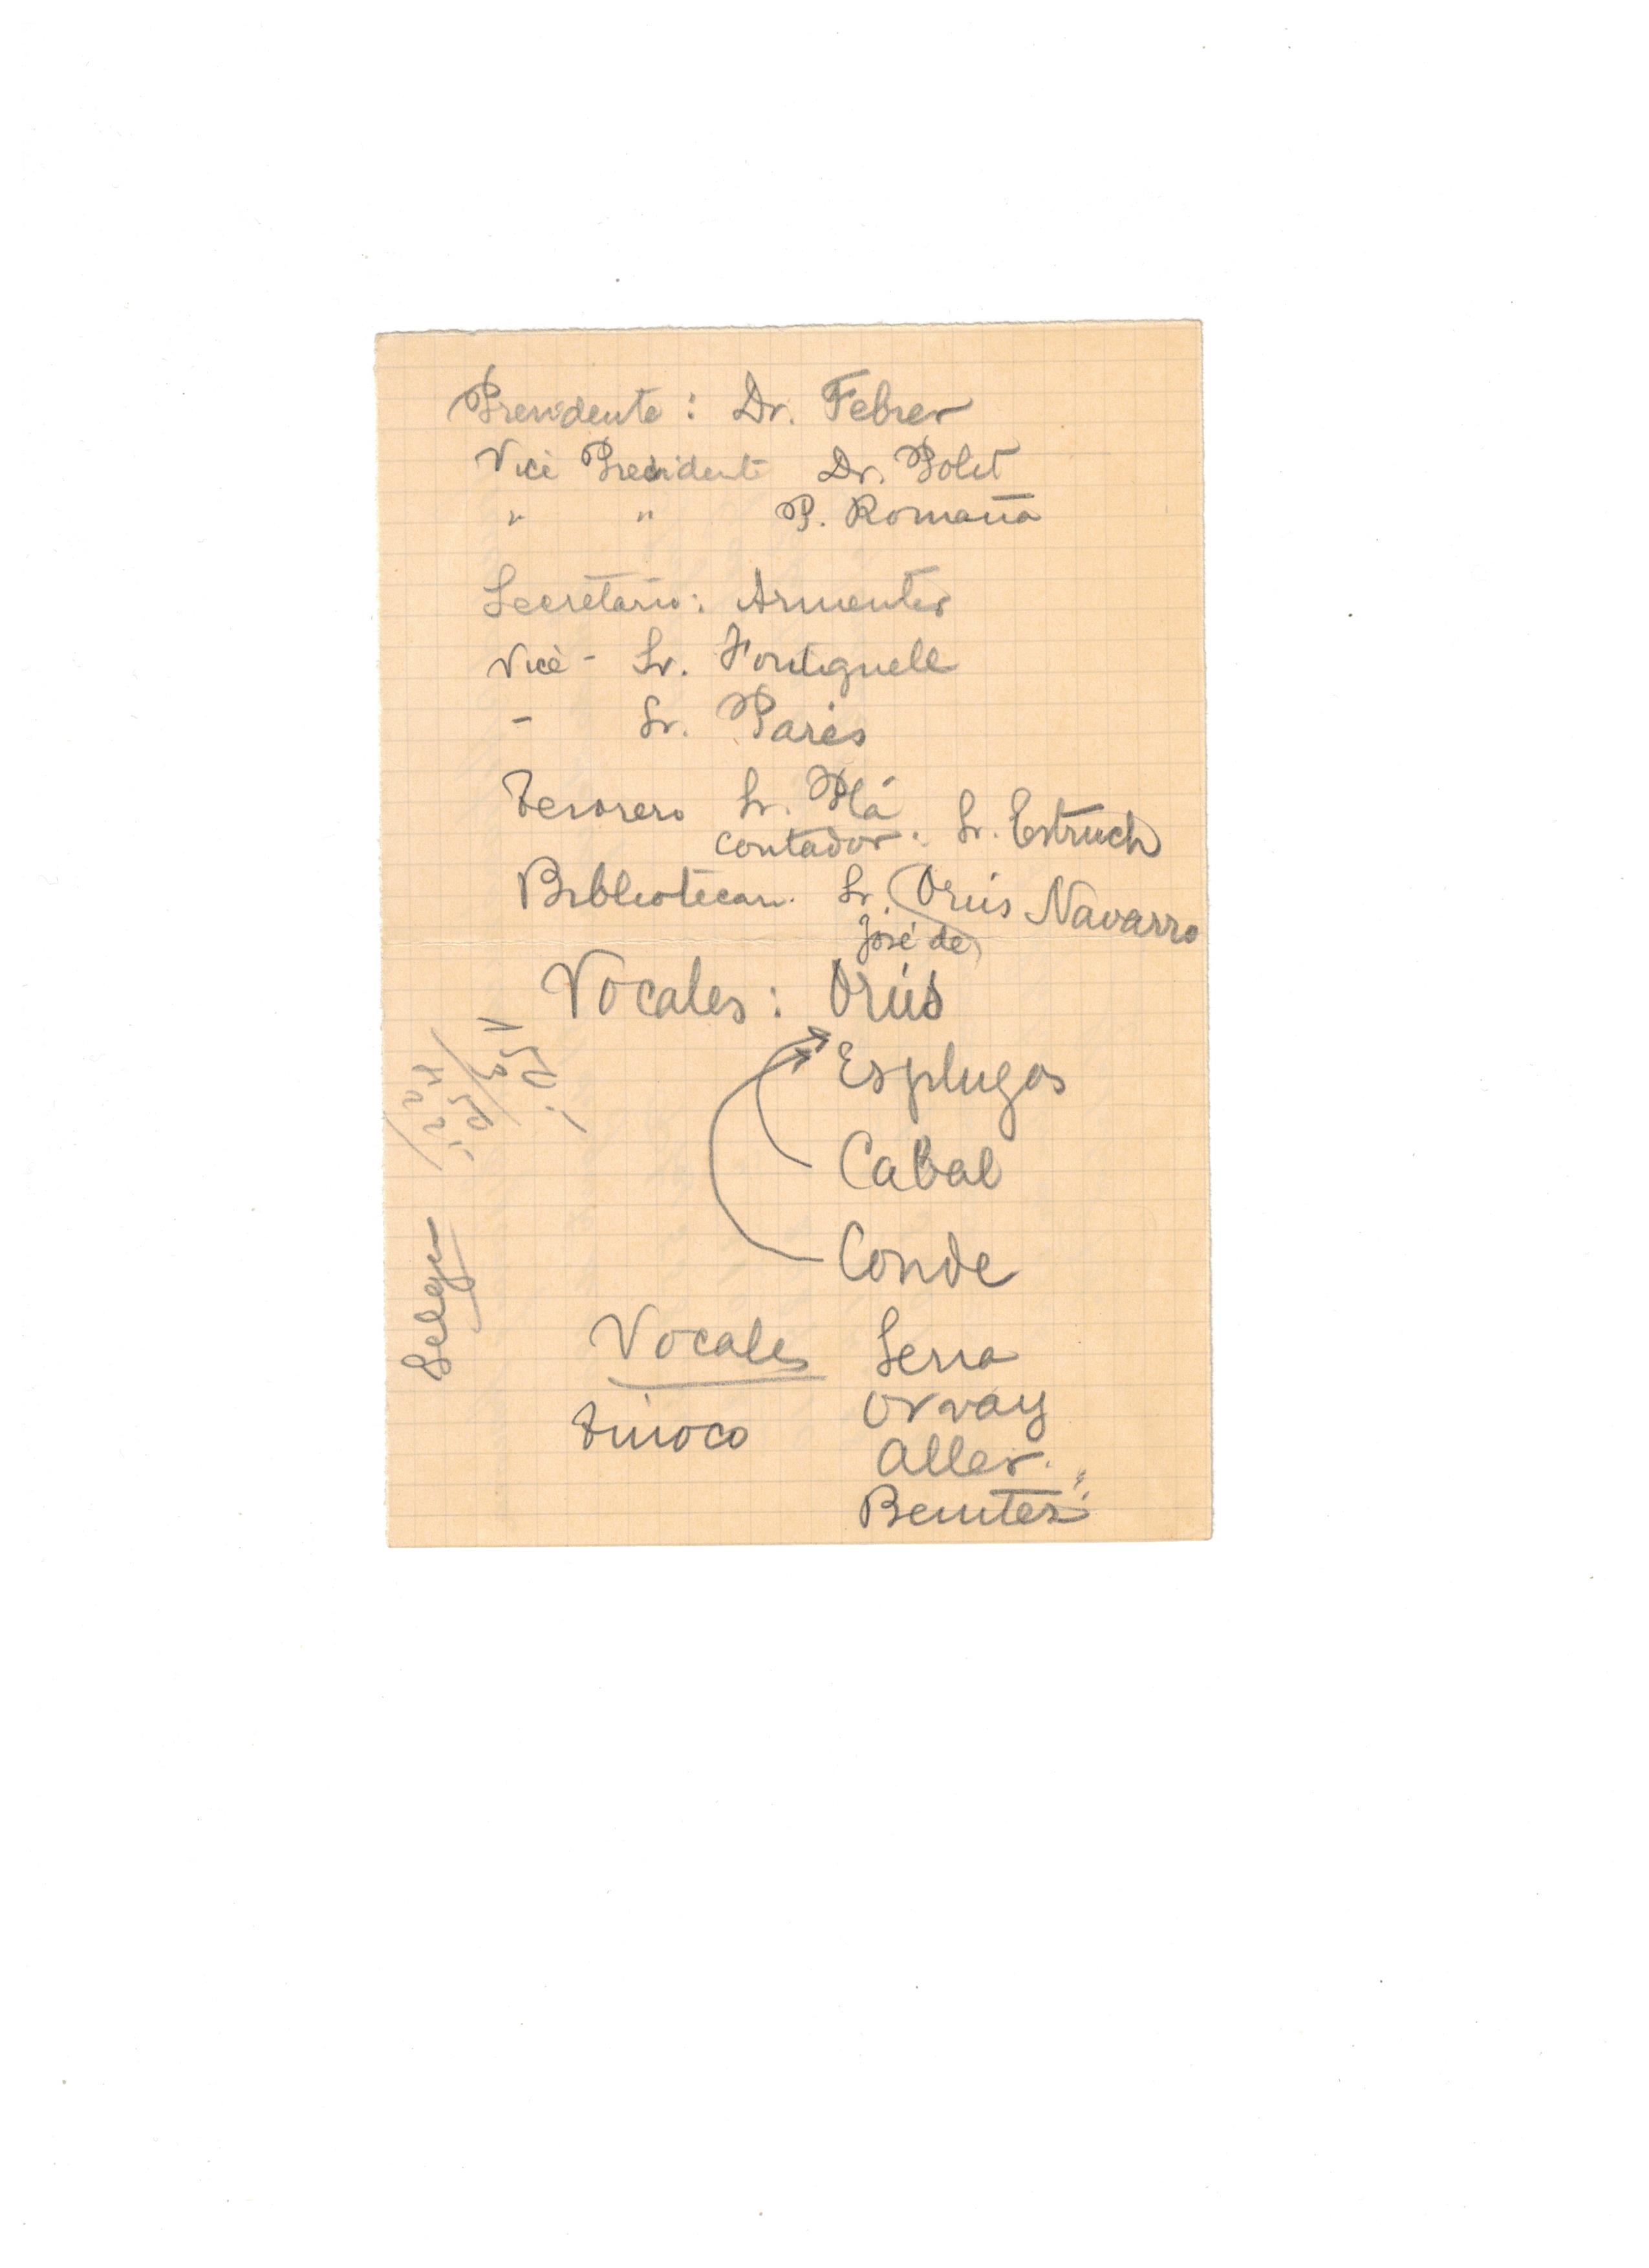 Presidente: Dr. Febrer
Vice Presidente Dr. Polit
" " P. Romañá
Secretario: Armenter
Vice - Sr. Fontquell
- Sr. Parés
Tesorero Sr. Plá
contador. Sr. Estruch
Bibliotecar. Sr. Orús Navarro
José de
Vocales: Orús
Esplugas
Cabal
Conde
Vocales Serra
Tinoco Orvay
Aller.
Benitez
Selga